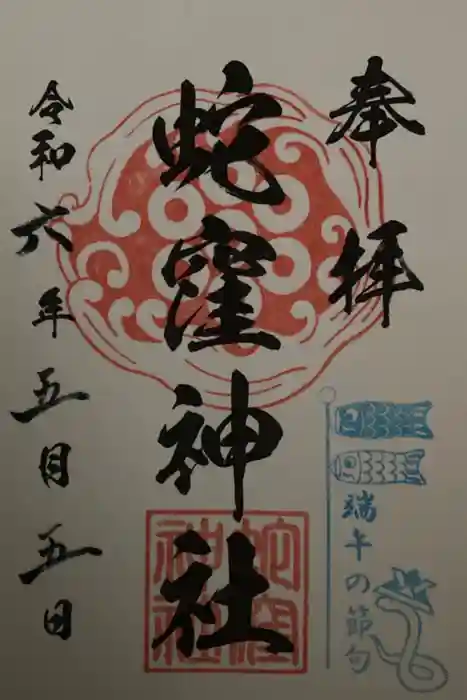 奉拝
蛇窪神社
蛇窪神社
端午の節句
令和六年五月五日